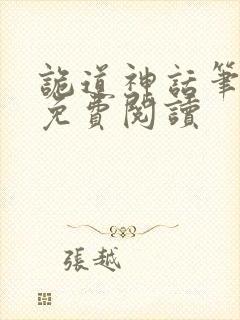 詭道神話筆
免費閱讀
張越